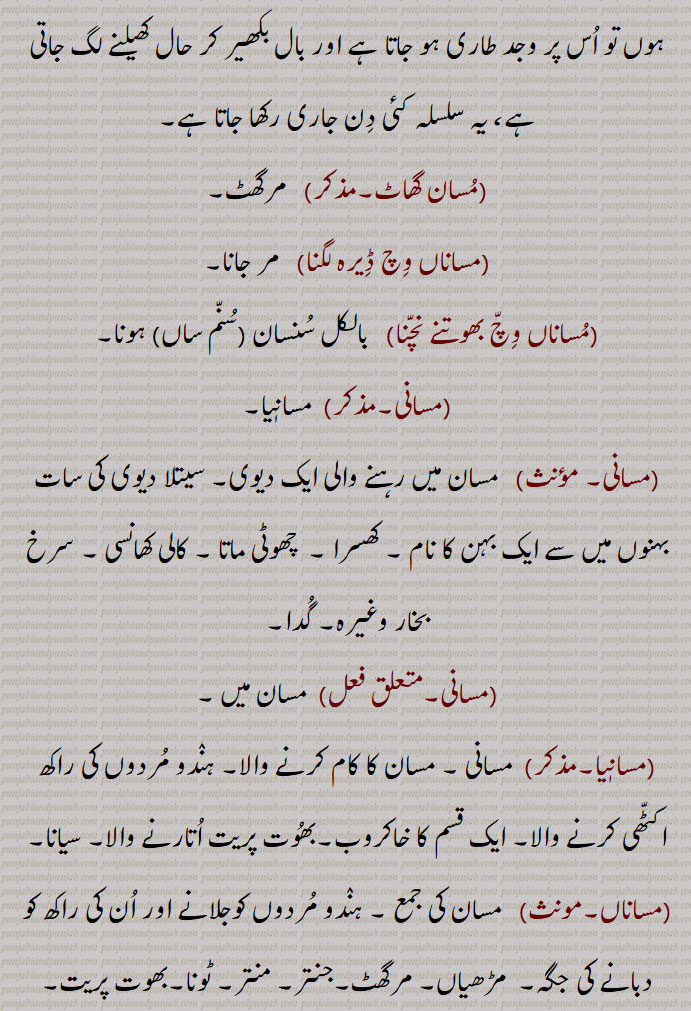 ہوں تو اُس پر وجد طاری ہو جاتا ہے اور بال بکھیر کر حال کھیلنے لگ جاتی
ہے، یہ سلسلہ کئی دِن جاری رکھا جاتا ہے۔
(مُسان گھاٹ۔مذکر) مرگھٹ۔
(مساناں وِچ ڈِیرہ لگنا) مر جانا۔
(مُساناں وِچّ بھوتنے نچّنا) بالکل سُنسان (سُنّم ساں) ہونا۔
(مسانی۔مذکر) مسانیا۔
(مسانی۔ مؤنث) مسان میں رہنے والی ایک دیوی۔ سیتلا دیوی کی سات
بہنوں میں سے ایک بہن کا نام ۔ کھسرا ۔ چھوٹی ماتا ۔ کالی کھانسی ۔ سرخ
بخار وغیرہ۔ گُدا۔
(مسانی۔متعلق فعل) مسان میں ۔
(مسانیا۔مذکر) مسانی ۔ مسان کا کام کرنے والا۔ ہنْدو مُردوں کی راکھ
اکٹّھی کرنے والا۔ ایک قسم کا خاکروب۔بھُوت پریت اُتارنے والا۔ سیانا۔
(مساناں۔مونث) مسان کی جمع ۔ ہنْدو مُردوں کوجلانے اور اُن کی راکھ کو
دبانے کی جگہ۔ مڑھیاں۔ مرگھٹ۔جنتر۔ منتر۔ ٹونا۔بھوت پریت۔